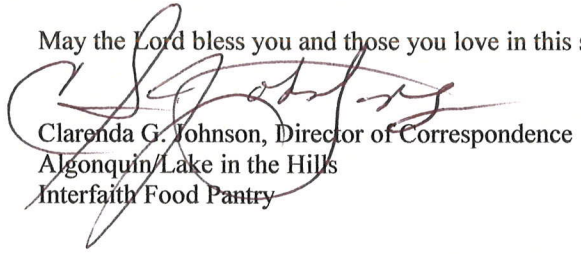 May the Lord bless you and those you love in this
Clarenda G. Johnson, Director of Correspondence
Algonquin/Lake in the Hills
Interfaith Food Pantry